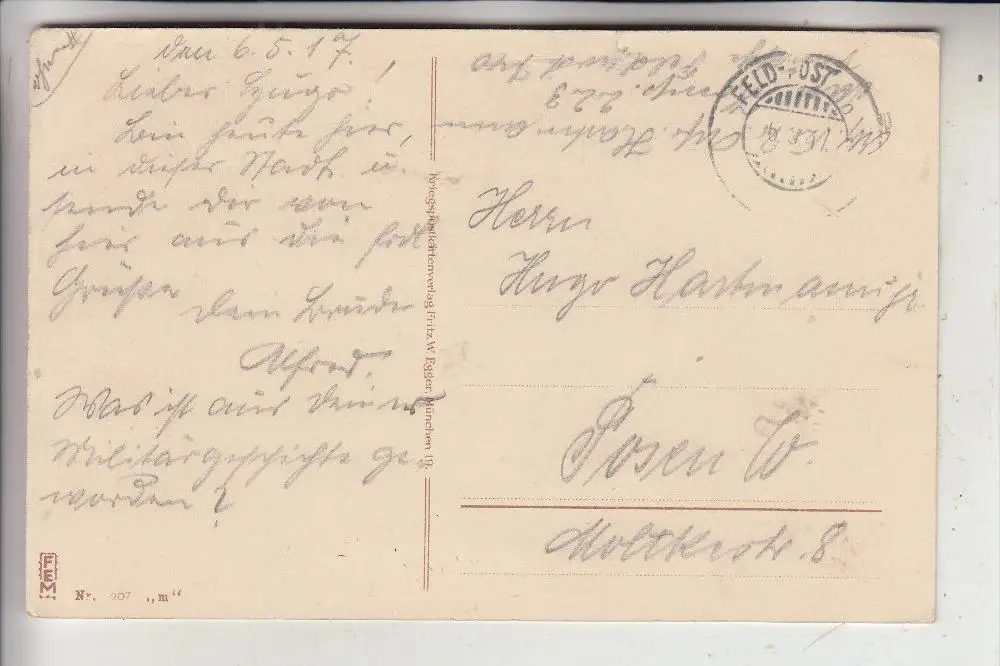 den 6.5.17.
Lieber Hugo!
Bin heute hier,
in dieser Stadt u.
sende dir von
hier aus die herzl
Grüße
Dein Bruder
Alfred.
Was ist aus deiner
Militärgeschichte ge-
worden?
FEM
Nr. 207 „m“
Kriegspostkartenverlag Fritz W Egger, München 19.
Hartmann
223
FELD-POST
Herrn
Hugo Hartmann
Posen W.
Moltkestr. 8